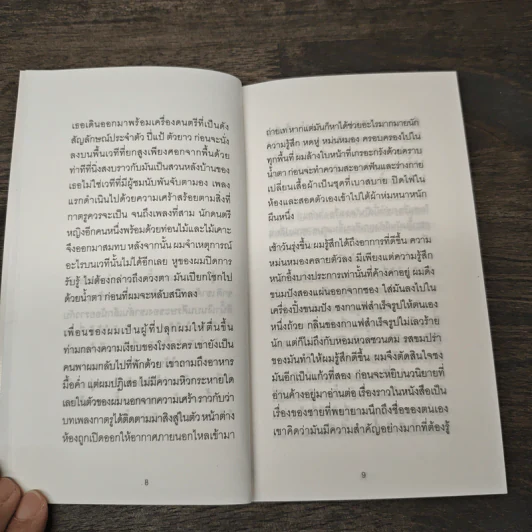 เธอเดินออกมาพร้อมเครื่องดนตรีที่เป็นดัง
สัญลักษณ์ประจำตัว ปี่แป้ ตัวยาว ก่อนจะนั่ง
ลงบนพื้นเวทีที่ยกสูงเพียงศอกจากพื้นด้วย
ท่าทีที่นิ่งสงบราวกับมันเป็นสวนหลังบ้านของ
เธอไม่ใช่เวทีที่มีผู้ชมนับพันจับตามอง เพลง
แรกดำเนินไปด้วยความเศร้าสร้อยตามสิ่งที่
กาตรูควรจะเป็น จนถึงเพลงที่สาม นักดนตรี
หญิงอีกคนหนึ่งพร้อมด้วยท่อนไม้และไม้เคาะ
จึงออกมาสมทบ หลังจากนั้น ผมจำเหตุการณ์
อะไรบนเวทีนั้นไม่ได้อีกเลย หูของผมปิดการ
รับรู้ ไม่ต้องกล่าวถึงดวงตา มันเปียกโชกไป
ด้วยน้ำตา ก่อนที่ผมจะหลับสนิทลง
เพื่อนของผมเป็นผู้ที่ปลุกผมให้ตื่นขึ้น
ท่ามกลางความเงียบของโรงละคร เขายังเป็น
คนพาผมกลับไปที่พักด้วย เขาถามถึงอาหาร
มื้อค่ำ แต่ผมปฏิเสธ ไม่มีความหิวกระหายใด
เลยในตัวของผมนอกจากความเศร้าราวกับว่า
บทเพลงกาตรูได้ติดตามมาสิงสู่ในตัว หน้าต่าง
ห้องถูกเปิดออกให้อากาศภายนอกไหลเข้ามา
8
ถ่ายเท หากแต่มันก็หาได้ช่วยอะไรมากมายนัก
ความรู้สึก หดหู่ หม่นหมอง ครอบครองไปใน
ทุกพื้นที่ ผมล้างใบหน้าที่เกรอะกรังด้วยคราบ
น้ำตา ก่อนจะทำความสะอาดฟันและร่างกาย
เปลี่ยนเสื้อผ้าเป็นชุดที่เบาสบาย ปิดไฟใน
ห้องและสอดตัวเองเข้าไปใต้ผ้าห่มหนาหนัก
ผืนหนึ่ง
เช้าวันรุ่งขึ้น ผมรู้สึกได้ถึงอาการที่ดีขึ้น ความ
หม่นหมองคลายตัวลง มีเพียงแต่ความรู้สึก
หนักอึ้งบางประการเท่านั้นที่ค้างคาอยู่ ผมดึง
ขนมปังสองแผ่นออกจากซอง ใส่มันลงไปใน
เครื่องปิ้งขนมปัง ชงกาแฟสำเร็จรูปให้ตนเอง
หนึ่งถ้วย กลิ่นของกาแฟสำเร็จรูปไม่เลวร้าย
นัก แต่ก็ไม่ถึงกับหอมหวลชวนดม รสขมปร่า
ของมันทำให้ผมรู้สึกดีขึ้น ผมจึงตัดสินใจชง
มันอีกเป็นแก้วที่สอง ก่อนจะหยิบนวนิยายที่
อ่านค้างอยู่มาอ่านต่อ เรื่องราวในหนังสือเป็น
เรื่องของชายที่พยายามนึกถึงชื่อของตนเอง
เขาคิดว่ามันมีความสำคัญอย่างมากที่ต้องรู้
9